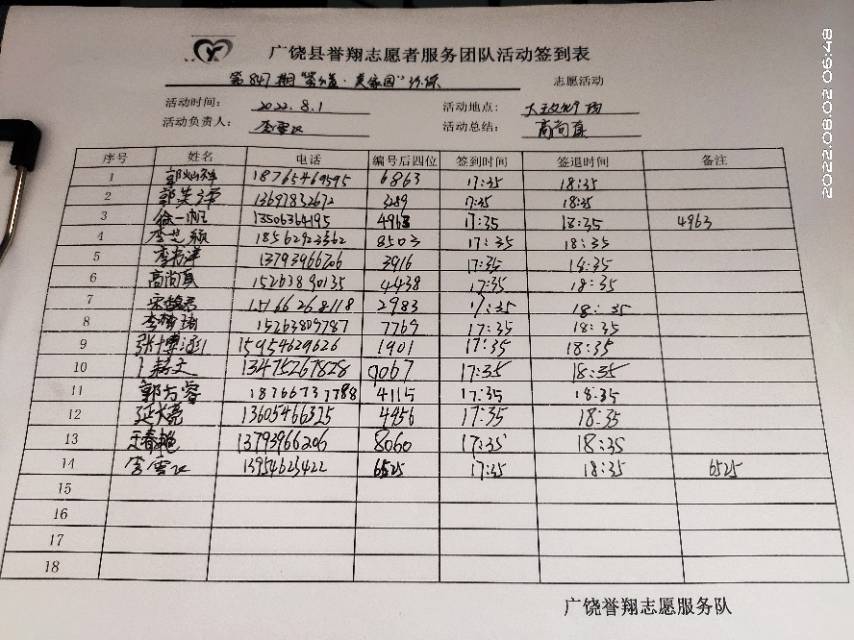 广饶县誉翔志愿者服务团队活动签到表
第847期 志愿活动
活动时间： 2022.8.1 活动地点：
活动负责人： 李雪 活动总结： 高尚真
序号 姓名 电话 编号后四位 签到时间 签退时间 备注
1 18765469595 6863 17:35 18:35
2 郭芙 13697832672 3289 17:35 18:35
3 徐一 13506364195 4963 17:35 18:35 4963
4 李艺颖 18562923362 8503 17:35 18:35
5 李 13793966206 3916 17:35 18:35
6 高尚真 15263890135 4438 17:35 18:35
7 宋 15166268118 2983 17:35 18:35
8 李 15263809787 7769 17:35 18:35
9 张博涵 15954629626 1901 17:35 18:35
10 13475267828 9067 17:35 18:35
11 郭方蓉 18766737788 4115 17:35 18:35
12 延大亮 13605466325 4956 17:35 18:35
13 王春艳 13793966206 8060 17:35 18:35
14 李雪 13954623422 6525 17:35 18:35 6525
15
16
17
18
广饶誉翔志愿服务队
2022.08.02 06:48